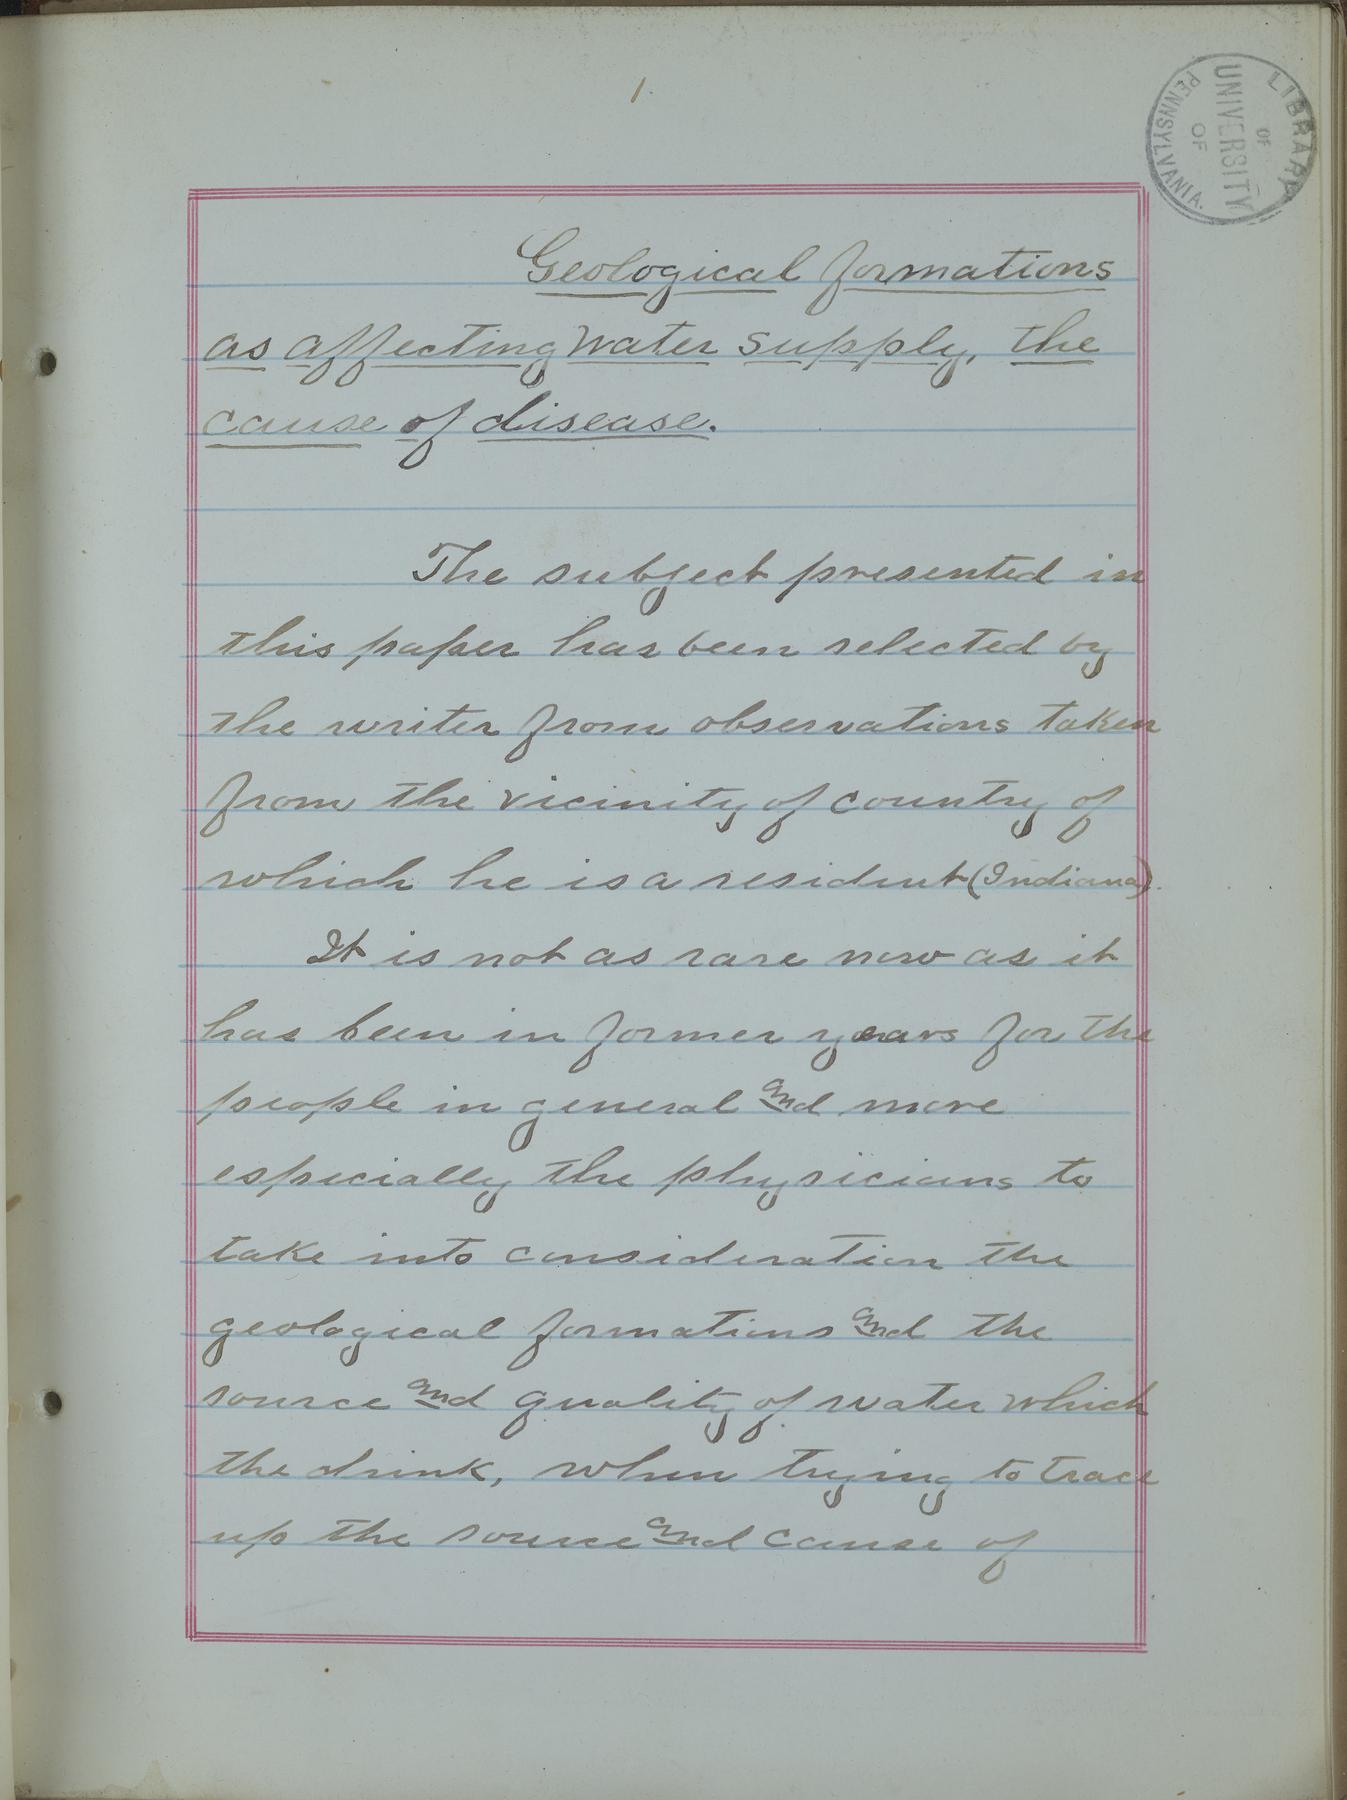 1.
LIBRARY
OF
UNIVERSITY
OF
PENNSYLVANIA.
Geological formations
as affecting water supply, the
cause of disease.
The subject presented in
this paper has been selected by
the writer from observations taken
from the vicinity of country of
which he is a resident (Indiana).
It is not as rare now as it
has been in former years for the
people in general and more
especially the physicians to
take into consideration the
geological formations and the
source and quality of water which
the drink, when trying to trace
up the source and cause of